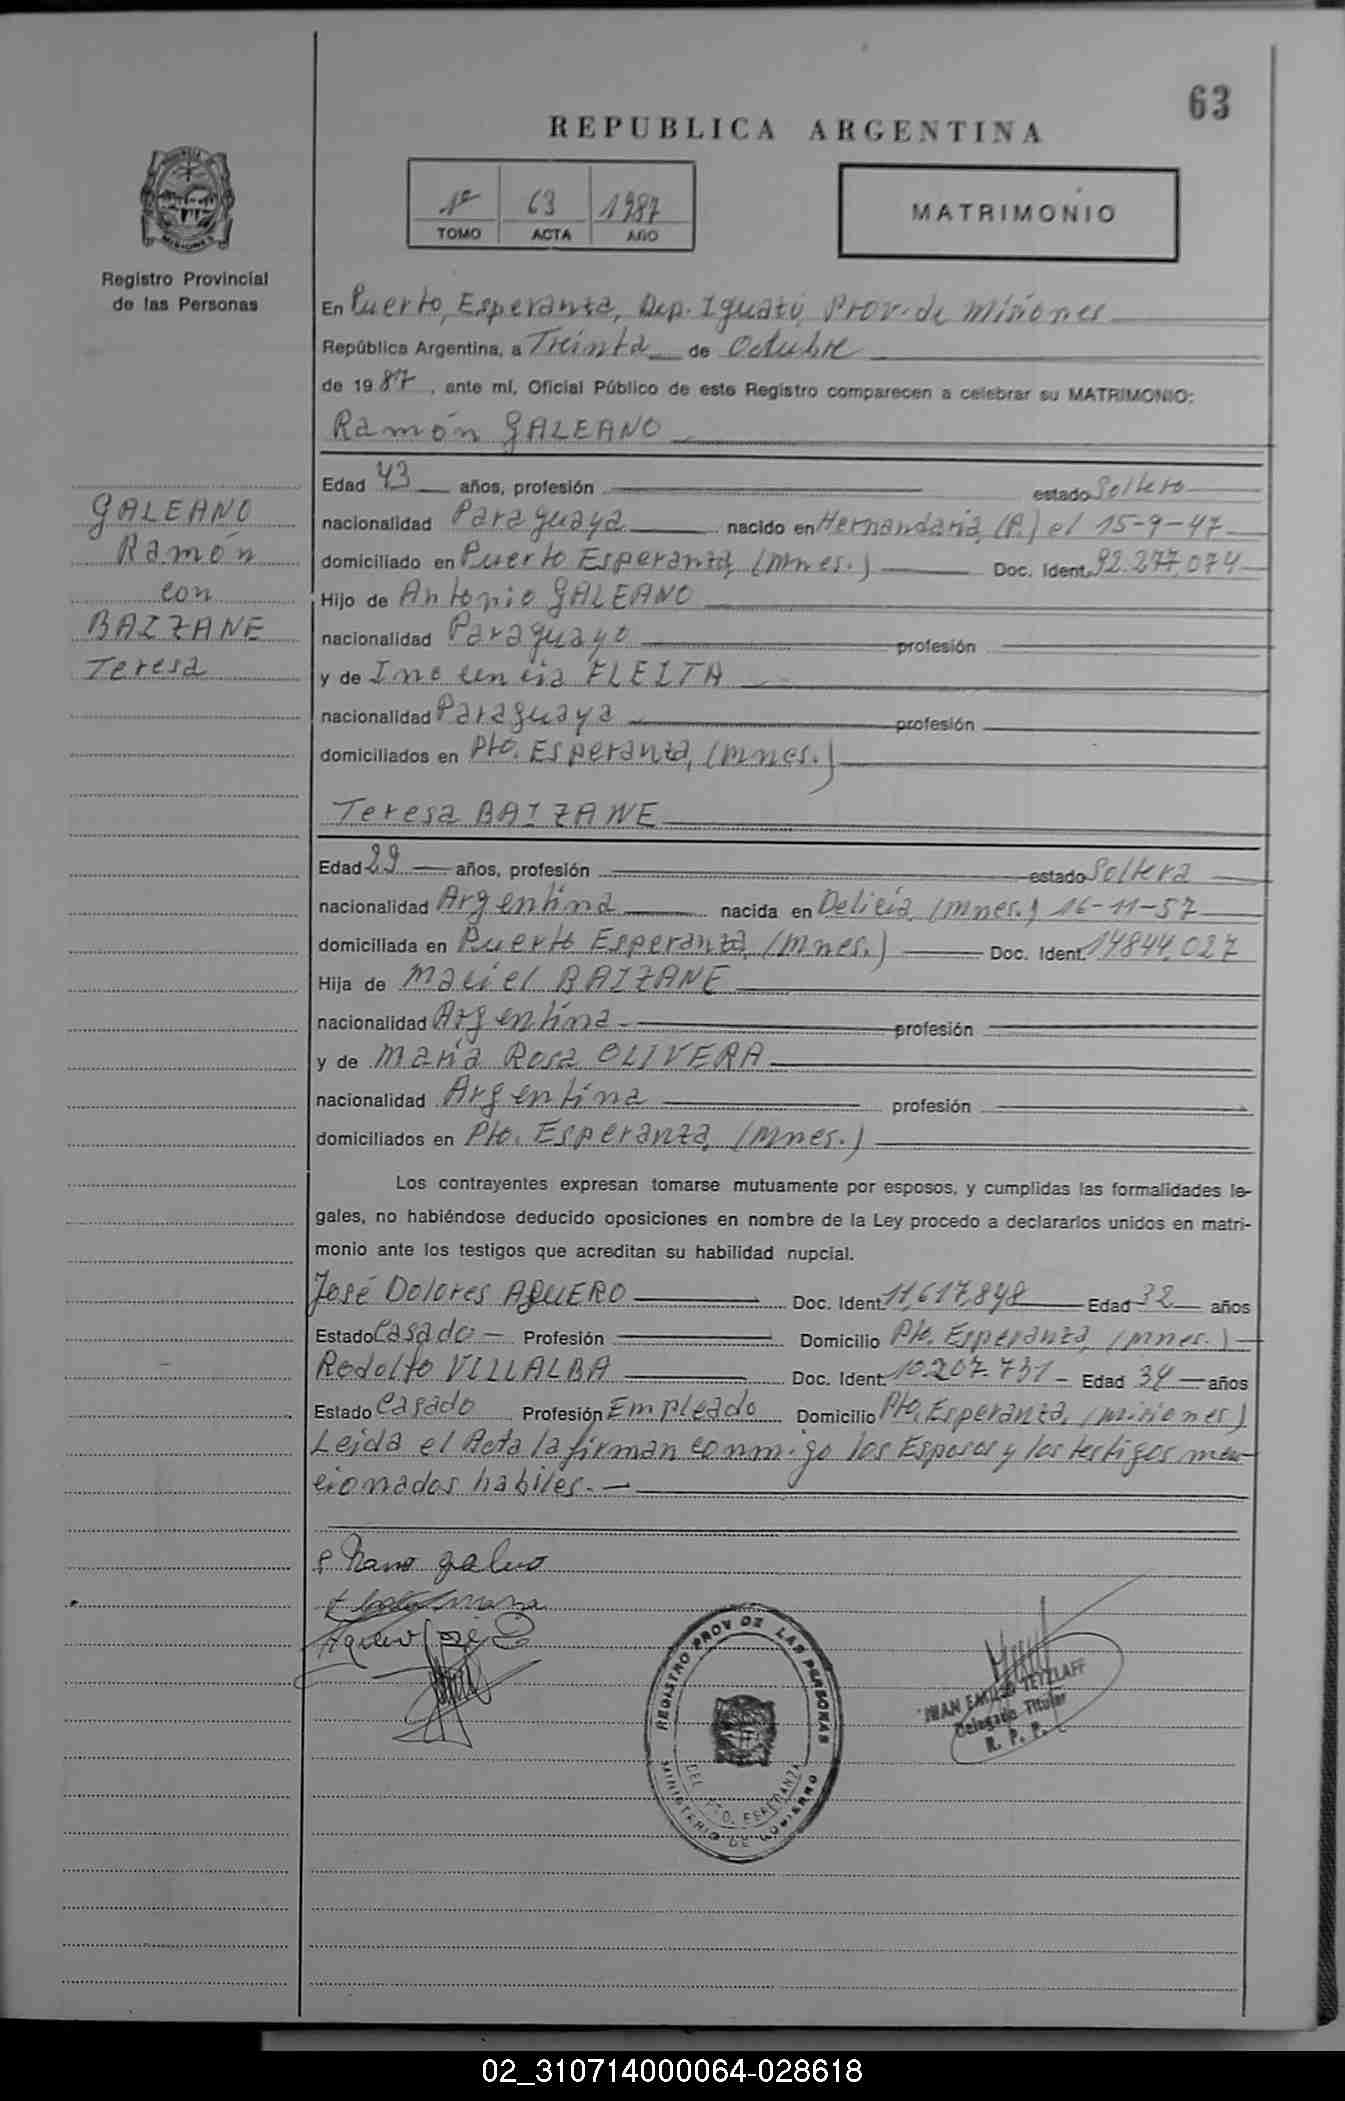 63
REPUBLICA ARGENTINA
1º 63 1987
TOMO ACTA AÑO
MATRIMONIO
Registro Provincial
de las Personas
En Puerto Esperanza, Dep. Iguazú, Prov. de Misiones
República Argentina, a Treinta de Octubre
de 1987, ante mí, Oficial Público de este Registro comparecen a celebrar su MATRIMONIO:
Ramón GALEANO
GALEANO
Ramón
con
BAIZANE
Teresa
Edad 43 años, profesión estado Soltero
nacionalidad Paraguaya nacido en Hernandaria, (P.) el 15-9-47
domiciliado en Puerto Esperanza, (Mnes.) Doc. Ident. 92.277.074
Hijo de Antonio GALEANO
nacionalidad Paraguayo profesión
y de Inocencia FLEITA
nacionalidad Paraguaya profesión
domiciliados en Pto. Esperanza, (Mnes.)
Teresa BAIZANE
Edad 29 años, profesión estado Soltera
nacionalidad Argentina nacida en Delicia, (Mnes.) 16-11-57
domiciliada en Puerto Esperanza, (Mnes.) Doc. Ident. 14844.027
Hija de Maciel BAIZANE
nacionalidad Argentina profesión
y de María Rosa OLIVERA
nacionalidad Argentina profesión
domiciliados en Pto. Esperanza, (Mnes.)
Los contrayentes expresan tomarse mutuamente por esposos, y cumplidas las formalidades le-
gales, no habiéndose deducido oposiciones en nombre de la Ley procedo a declararlos unidos en matri-
monio ante los testigos que acreditan su habilidad nupcial.
José Dolores AGUERO Doc. Ident. 11.617.898 Edad 32 años
Estado Casado Profesión Domicilio Pto. Esperanza, (Mnes.)
Rodolfo VILLALBA Doc. Ident. 10.207.731 Edad 34 años
Estado Casado Profesión Empleado Domicilio Pto. Esperanza, (Misiones)
Leida el Acta la firman conmigo los Esposos y los testigos men-
cionados habiles.
Aguero José D
REGISTRO PROV DE LAS PERSONAS
DEL PTO. ESPERANZA
MINISTERIO DE GOBIERNO
JUAN EMILIO TETZLAFF
Delegado Titular
R. P. P.
02_310714000064-028618